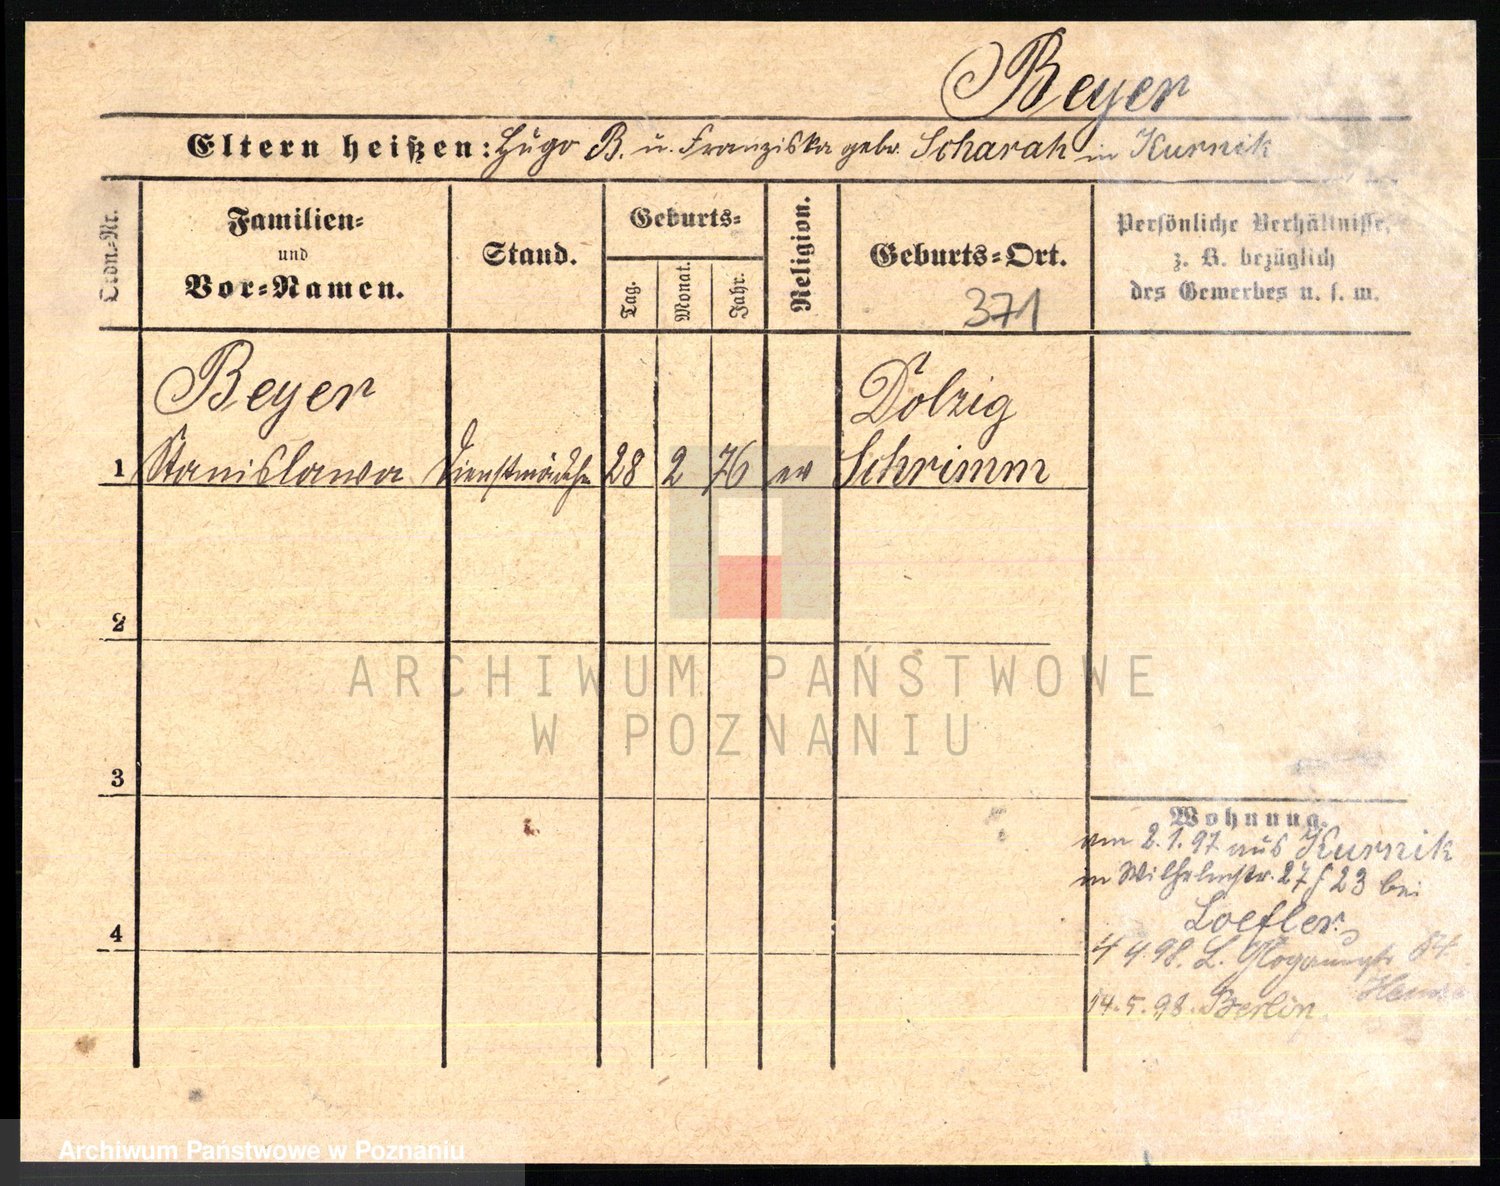 Beyer
Eltern heißen: Hugo B. u. Franziska geb. Scharah in Kurnik
Ordn.-Nr.
Familien-
und
Vor-Namen.
Stand.
Geburts-
Tag.
Monat.
Jahr.
Religion.
Geburts-Ort.
371
Persönliche Verhältnisse,
z. B. bezüglich
des Gewerbes u. s. w.
Beyer
Dolzig
1 Stanislawa Dienstmädchen 28 2 76 ev Schrimm
2
ARCHIWUM PAŃSTWOWE
W POZNANIU
3
Wohnung.
am 2.1.97 aus Kurnik
in Wilhelmstr. 27 23 bei
Loefler
4
4 4.98. L.
14.5.98. Berlin.
Archiwum Państwowe w Poznaniu